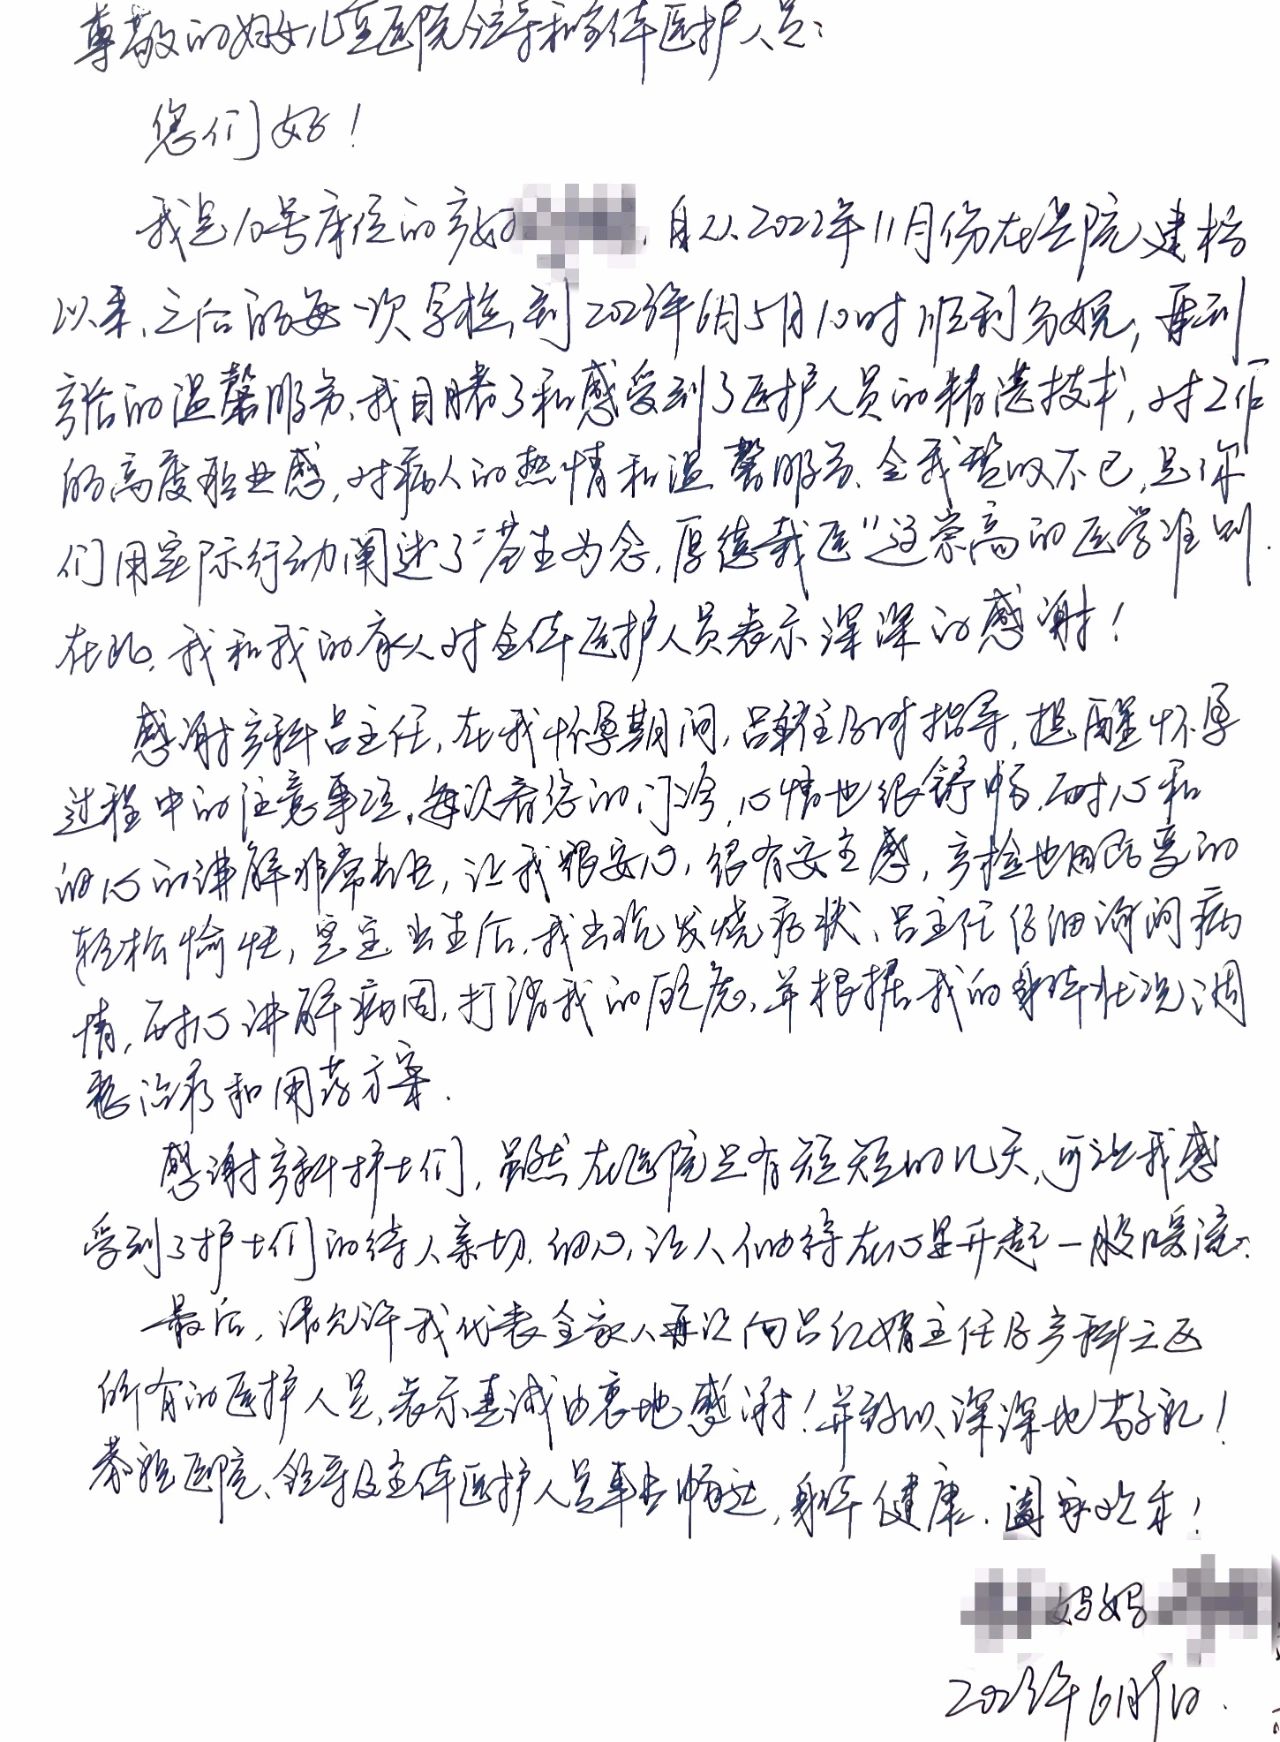 尊敬的妇女儿童医院领导和全体医护人员：
您们好！
我是10号床位的产妇，自从2022年11月份在医院建档
以来、之后的每一次孕检，到2023年6月5日10时顺利分娩，再到
产后的温馨服务、我目睹了和感受到了医护人员的精湛技术，对工作
的高度职业感，对病人的热情和温馨服务、令我赞叹不已，是你
们用实际行动阐述了“苍生为念，厚德载医”这崇高的医学准则.
在此，我和我的家人对全体医护人员表示深深的感谢！
感谢产科吕主任，在我怀孕期间，吕主任及时指导，提醒怀孕
过程中的注意事项，每次看您的门诊，心情也很舒畅，耐心和
细心的讲解非常专业，让我很安心，很有安全感，产检也
轻松愉快，宝宝出生后，我出现发烧症状、吕主任仔细询问病
情，耐心讲解病因，打消我的顾虑，并根据我的身体状况调
整治疗和用药方案.
感谢产科护士们，虽然在医院只有短短的几天，可让我感
受到了护士们的待人亲切，细心，让人倍在心里升起一股暖流.
最后，请允许我代表全家人再次向吕红娟主任及产科二区
所有的医护人员，表示真诚由衷地感谢！并致以深深地敬礼！
恭祝医院、领导及全体医护人员事业顺达，身体健康、阖家欢乐！
妈妈
2023年6月9日.